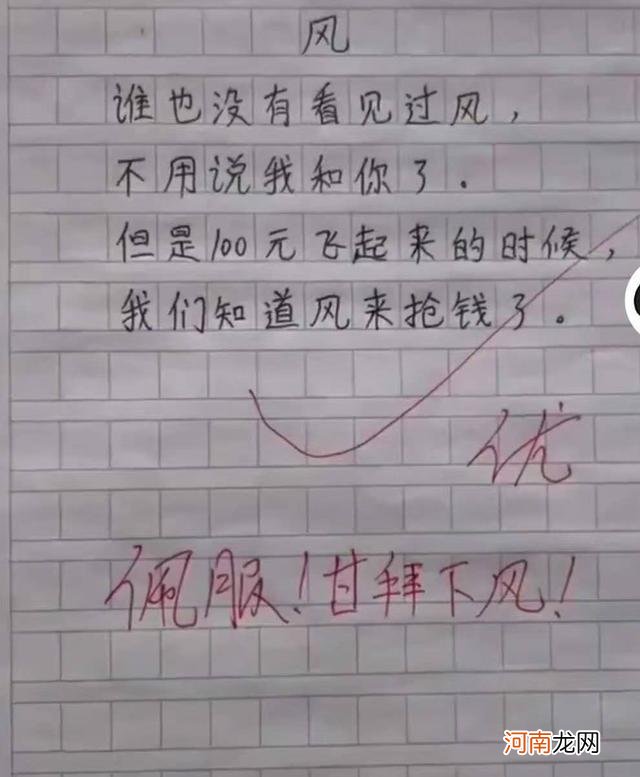 风
谁也没有看见过风，
不用说我和你了．
但是100元飞起来的时候，
我们知道风来抢钱了。
优
佩服！甘拜下风！
河南龙网